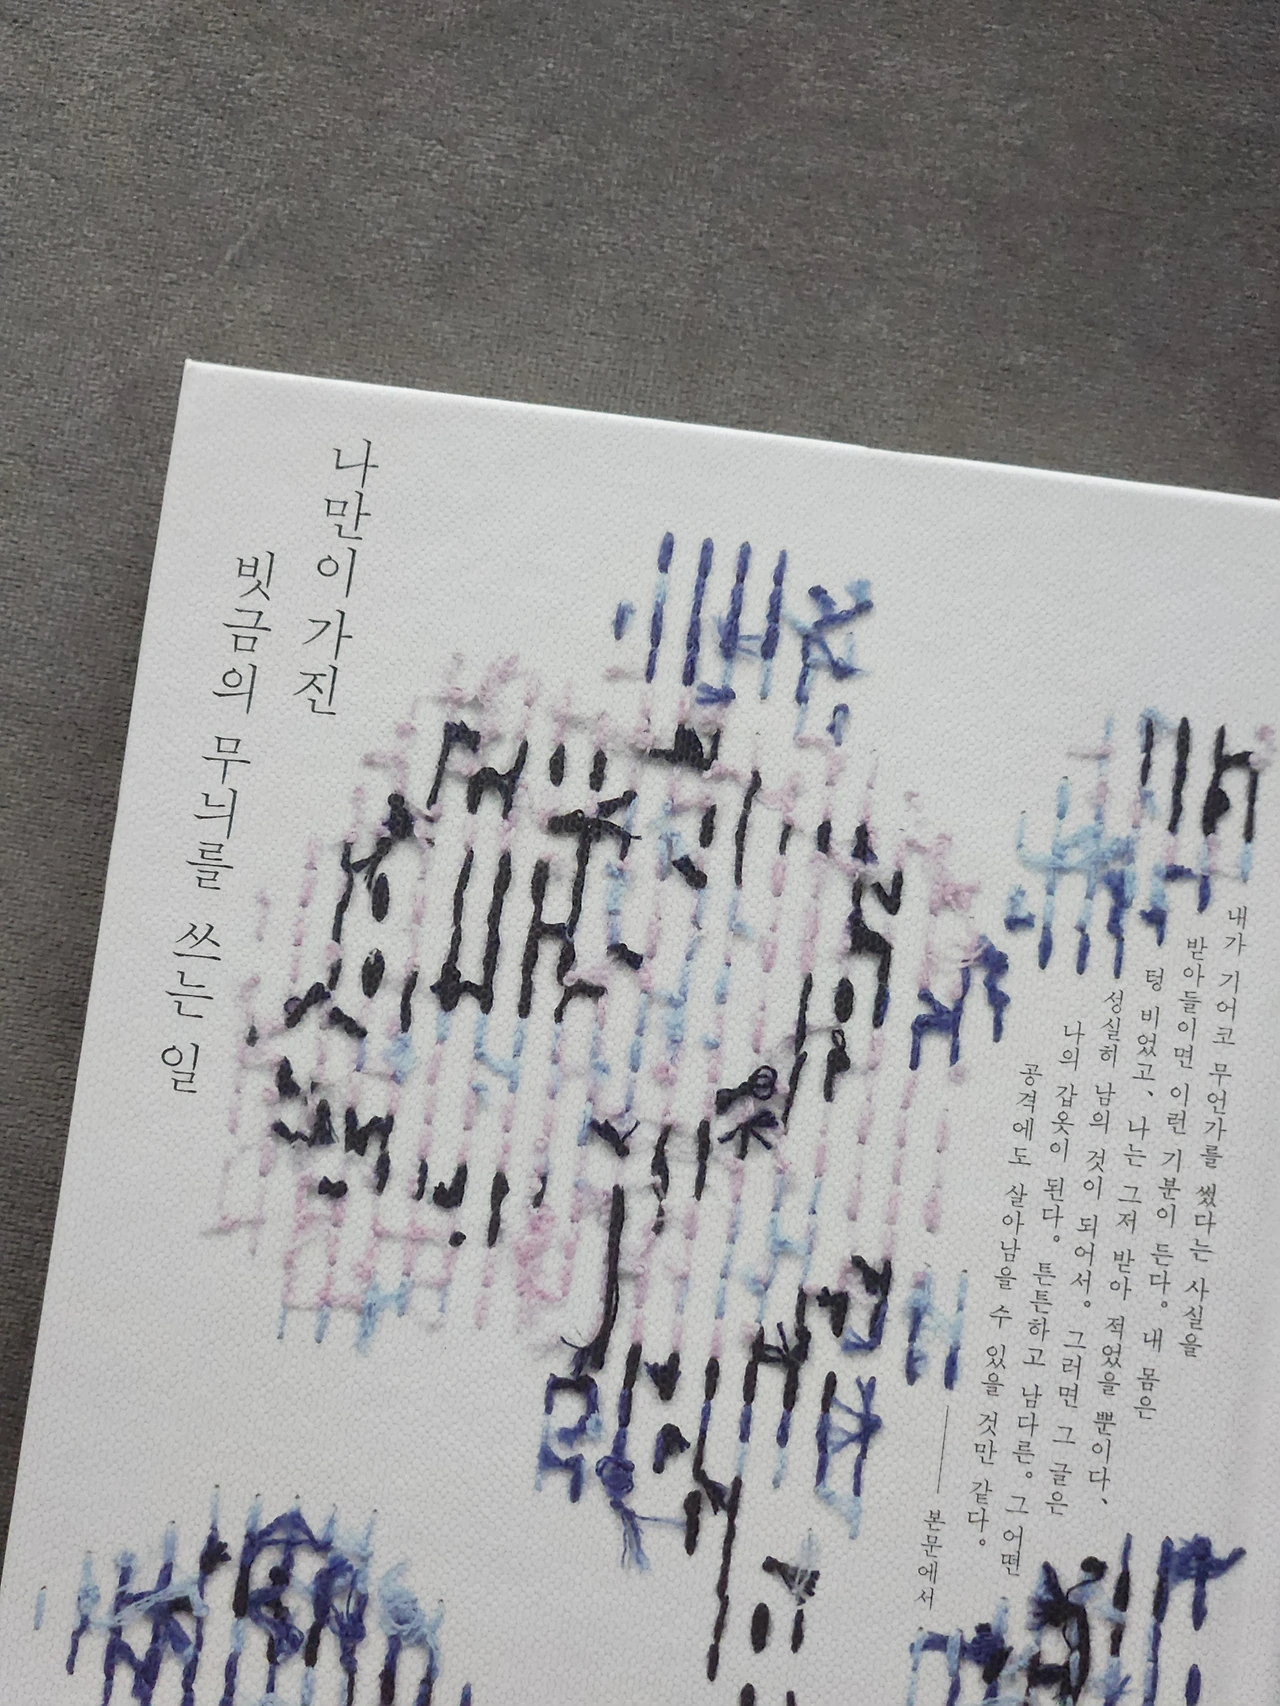 내가 기어코 무언가를 썼다는 사실을
받아들이면 이런 기분이 든다。 내 몸은
텅 비었고、 나는 그저 받아 적었을 뿐이다、
성실히 남의 것이 되어서。 그러면 그 글은
나의 갑옷이 된다。 튼튼하고 남다른。 그 어떤
공격에도 살아남을 수 있을 것만 같다。
—— 본문에서
나만이 가진
빗금의 무늬를 쓰는 일